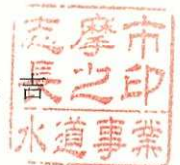 志摩市
長之印
水道事業
吉